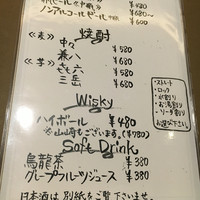 ノンアルコールビール ¥600
焼酎
<麦> 中々 ¥580
兼八 ¥680
<芋> き六 ¥580
三岳 ¥630
・ストレート
・ロック
・水割り
・お湯割り
・ソーダ割り
お選び下さい
Wisky
ハイボール ¥480
※山崎もございます。(¥780)
Soft Drink
烏龍茶 ¥380
グレープフルーツジュース ¥380
日本酒は別紙をご覧下さいませ。